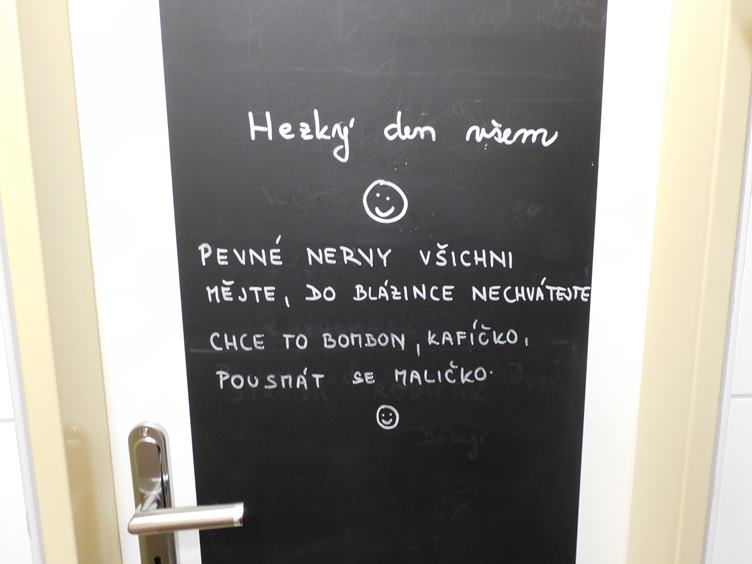 Hezký den všem
PEVNÉ NERVY VŠICHNI
MĚJTE, DO BLÁZINCE NECHVÁTEJTE
CHCE TO BONBON, KAFÍČKO,
POUSMÁT SE MALIČKO.
Děkuji